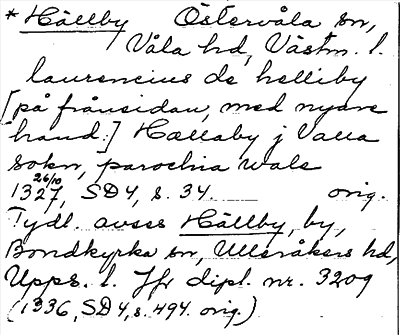 * Hällby Östervåla sn,
Våla hd, Västm. l.
laurencius de helliby
[på frånsidan, med nyare
hand:] Hællaby j Valla
sokn, parochia wale
26/10
1327, SD 4, s. 34. orig.
Tydl. avses Hällby, by,
Bondkyrka sn, Ulleråkers hd,
Upps. l. Jfr dipl. nr. 3209
(1336, SD 4, s. 494. orig.)